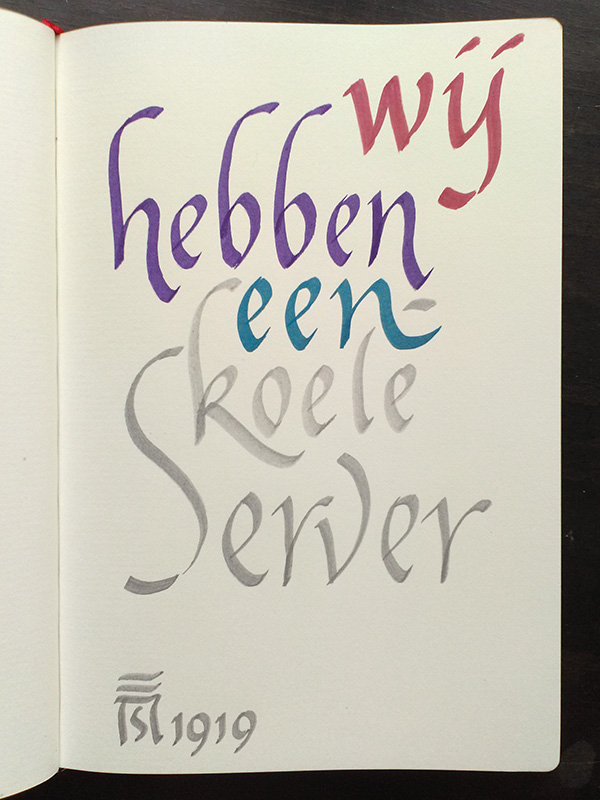 wij
hebben
een
koele
Server
1919